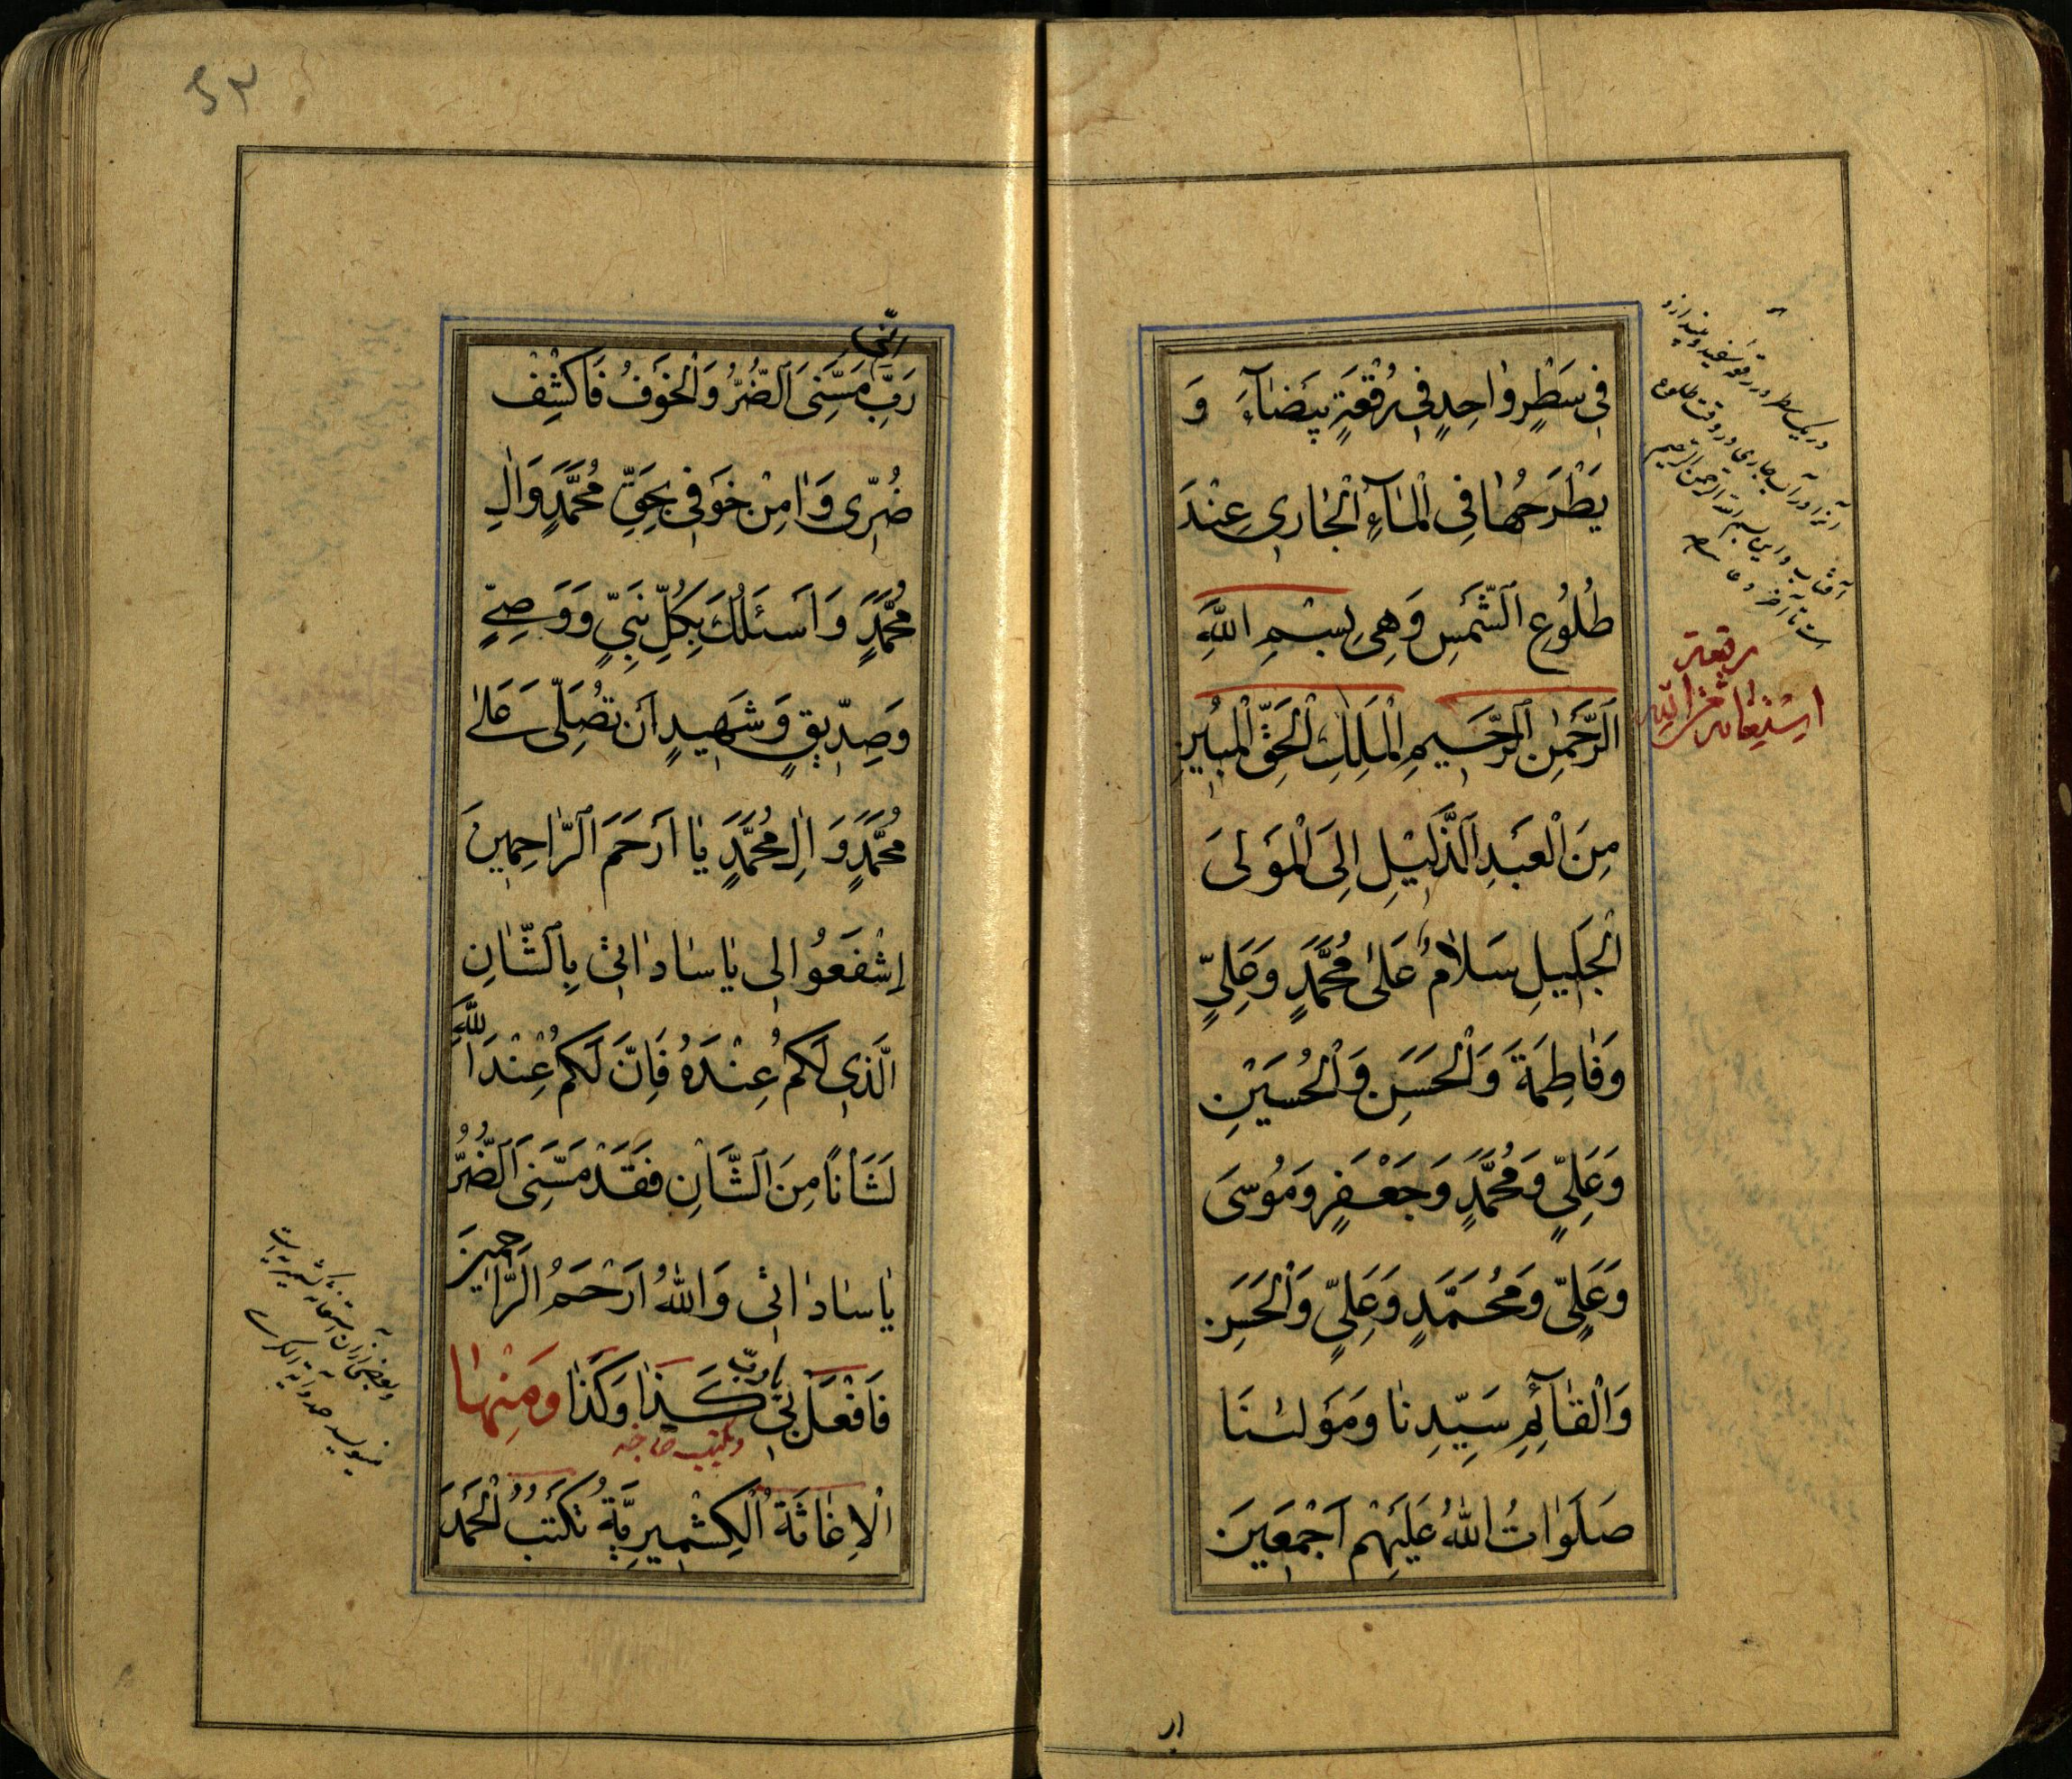 فِي سَطْرٍ وٰاحِدٍ فِي رُقْعَةٍ بَيْضٰآءَ وَ
يَطْرَحُهٰا فِي الْمٰآءِ الْجٰارِي عِنْدَ
طُلُوعِ الشَّمْسِ وَهِيَ بِسْمِ اللّٰهِ
الرَّحْمٰنِ الرَّحِيمِ الْمَلِكِ الْحَقِّ الْمُبِينِ
مِنَ الْعَبْدِ الذَّلِيْلِ اِلَى الْمَوْلَى
الْجَلِيلِ سَلٰامٌ عَلىٰ مُحَمَّدٍ وَعَلِيٍّ
وَفٰاطِمَةَ وَالْحَسَنِ وَالْحُسَيْنِ
وَعَلِيٍّ وَمُحَمَّدٍ وَجَعْفَرٍ وَمُوسَى
وَعَلِيٍّ وَمُحَمَّدٍ وَعَلِيٍّ وَالْحَسَنِ
وَالْقٰآئِمِ سَيِّدِنٰا وَمَوْلٰنَا
صَلَوٰاتُ اللّٰهُ عَلَيْهِمْ اَجْمَعِينَ
در يک سطر در رقعه سفيد و بيندازد
آنرا در آب جاری در وقت طلوع
آفتاب و اين بسم الله الرحمن الرحيم
است تا آخر دعا
رقعة
اِسْتِغٰاثه
ار
۵۳
اِنّي
رَبِّ مَسَّنِيَ الضُّرُّ وَالْخَوْفُ فَاكْشِفْ
ضُرِّي وَاٰمِنْ خَوْفِي بِحَقِّ مُحَمَّدٍ وَاٰلِ
مُحَمَّدٍ وَاَسْئَلُكَ بِكُلِّ نَبِيٍّ وَوَصِيٍّ
وَصِدِّيقٍ وَشَهِيدٍ اَنْ تُصَلِّيَ عَلىٰ
مُحَمَّدٍ وَاٰلِ مُحَمَّدٍ يٰا اَرْحَمَ الرّٰاحِمِينَ
اِشْفَعُوا لِي يٰا سٰادٰاتِي بِالشَّاْنِ
الَّذِي لَكُمْ عِنْدَهُ فَاِنَّ لَكُمْ عِنْدَ اللّٰهِ
لَشَاْنًا مِنَ الشَّاْنِ فَقَدْ مَسَّنِيَ الضُّرُّ
يٰا سٰادٰاتِي وَاللّٰهُ اَرْحَمُ الرّٰاحِمِينَ
فَافْعَلْ بِي يا ربّ كَذٰا وَكَذٰا وَمِنْهٰا
ويكتب حاجته
الْاِغٰاثَةُ الْكِشْمِيرِيَّةُ تُكْتَبُ الْحَمْدَ
و بعضی از آن استغاثه کشميريه است
مينويسد حمد و آية الکرسی